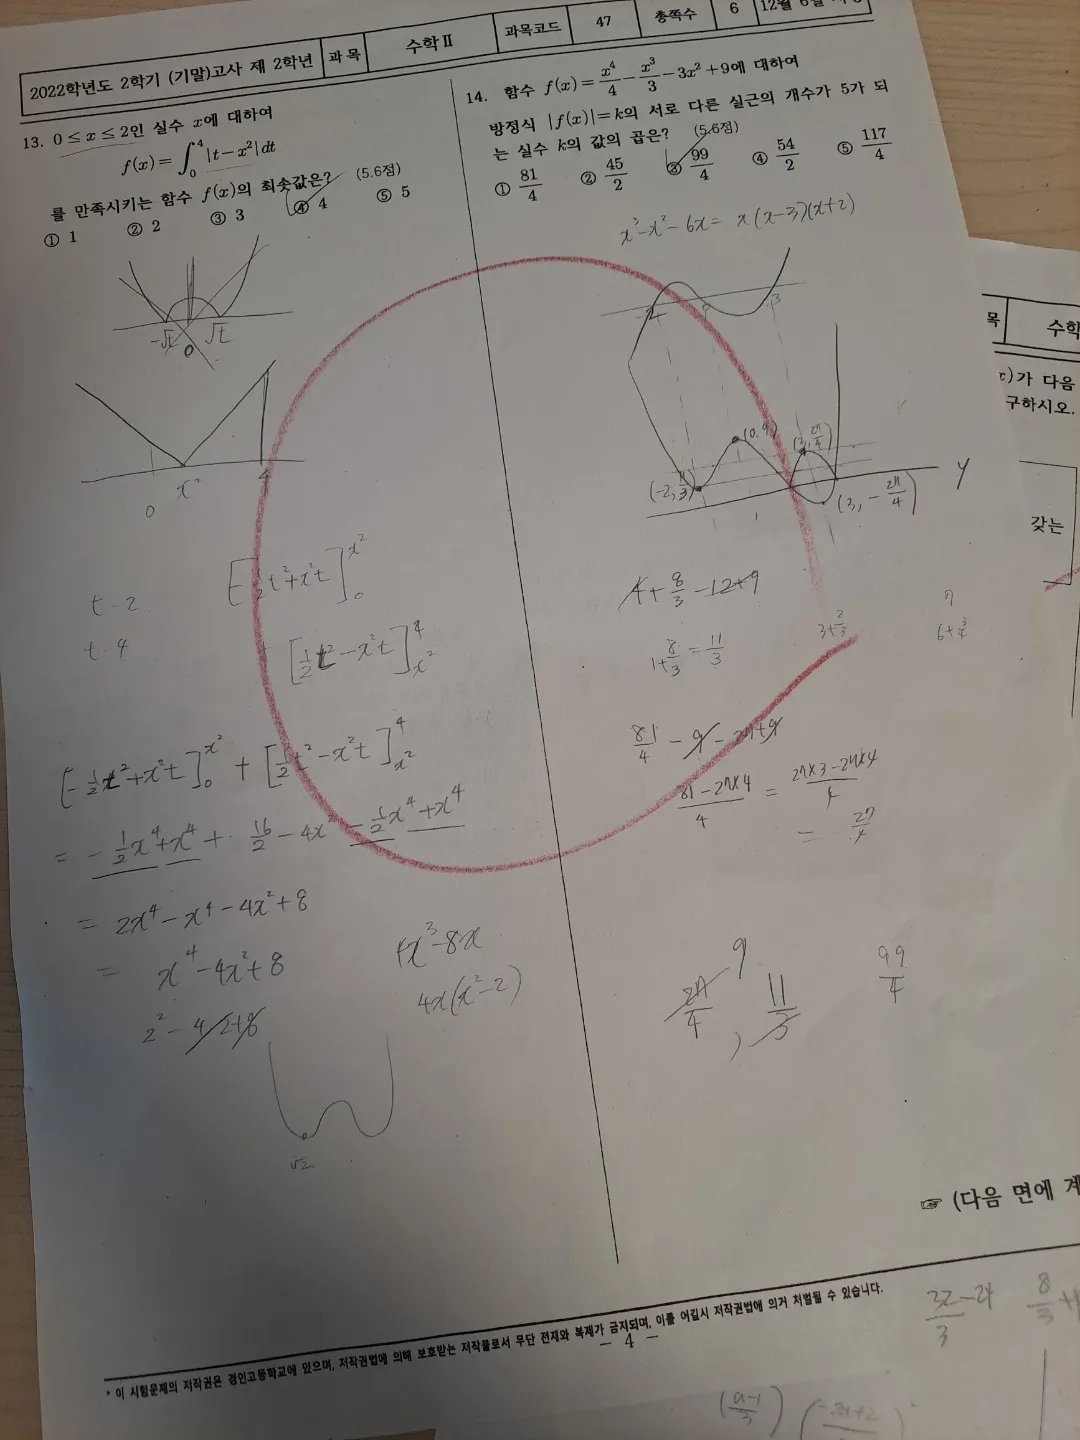 2022학년도 2학기 (기말)고사 제 2학년 과 목 수학Ⅱ 과목코드 47 총쪽수 6 12월 6일
13. 0 ≤ x ≤ 2인 실수 x에 대하여
f(x) = ∫₀⁴ |t-x²|dt
를 만족시키는 함수 f(x)의 최솟값은? (5.6점)
① 1 ② 2 ③ 3 ④ 4 ⑤ 5
-√t 0 √t
0 x² 4
t-2
t-4
[-1/2t²+x²t]₀^x²
[1/2t²-x²t]_x²^4
[-1/2t²+x²t]₀^x² + [1/2t²-x²t]_x²^4
= -1/2x⁴+x⁴ + 16/2 - 4x² - 1/2x⁴+x⁴
= 2x⁴-x⁴-4x²+8
= x⁴-4x²+8
4x³-8x
4x(x²-2)
2²-4·2+8
√2
14. 함수 f(x) = x⁴/4 - x³/3 - 3x² + 9에 대하여
방정식 |f(x)|=k의 서로 다른 실근의 개수가 5가 되
는 실수 k의 값의 곱은? (5.6점)
① 81/4 ② 45/2 ③ 99/4 ④ 54/2 ⑤ 117/4
x³-x²-6x = x(x-3)(x+2)
-2 3
(0,9) (3, 27/4)
(-2, 11/3) (3, -27/4)
y
4+8/3-12+9
1+8/3 = 11/3
3+2/3
6+3/4
81/4 - 9 - 27+9
81-27×4/4 = 27×3-27×4/4
= -27/4
9
27/4, 11/3
99/4
☞ (다음 면에 계
* 이 시험문제의 저작권은 경인고등학교에 있으며, 저작권법에 의해 보호받는 저작물로서 무단 전재와 복제가 금지되며, 이를 어길시 저작권법에 의거 처벌될 수 있습니다.
- 4 -
목 수학
x)가 다음
구하시오.
갖는
32-24/3 8/3